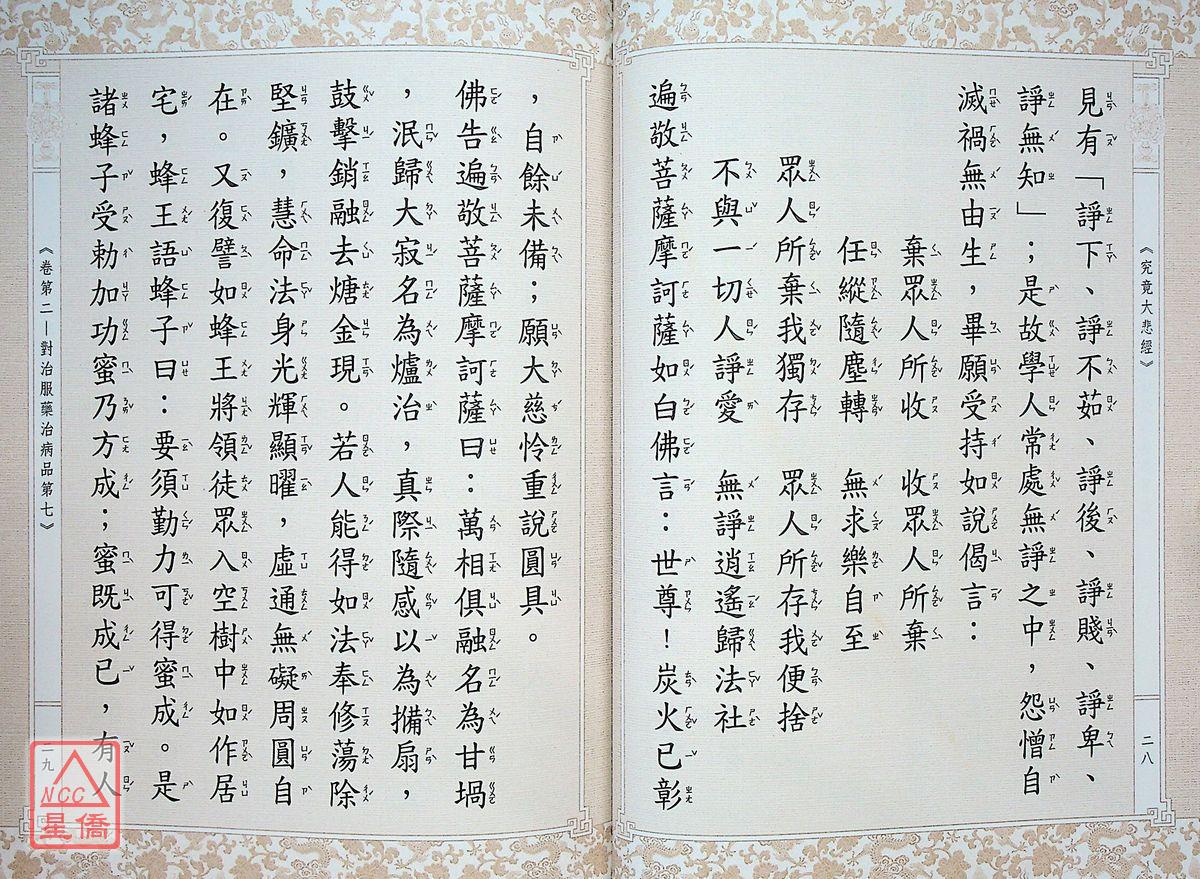 《究竟大悲經》
二八
見有「諍下、諍不茹、諍後、諍賤、諍卑、
諍無知」；是故學人常處無諍之中，怨憎自
滅禍無由生，畢願受持如說偈言：
棄眾人所收　收眾人所棄
任縱隨塵轉　無求樂自至
眾人所棄我獨存　眾人所存我便捨
不與一切人諍愛　無諍逍遙歸法社
遍敬菩薩摩訶薩如白佛言：世尊！炭火已彰
，自餘未備；願大慈怜重說圓具。
佛告遍敬菩薩摩訶薩曰：萬相俱融名為甘堝
，泯歸大寂名為爐冶，真際隨感以為構扇，
鼓擊銷融去煻金現。若人能得如法奉修蕩除
堅鑛，慧命法身光輝顯曜，虛通無礙周圓自
在。又復譬如蜂王將領徒眾入空樹中如作居
宅，蜂王語蜂子曰：要須勤力可得蜜成。是
諸蜂子受勅加功蜜乃方成；蜜既成已，有人
《卷第二－對治服藥治病品第七》
二九
NCC
星僑